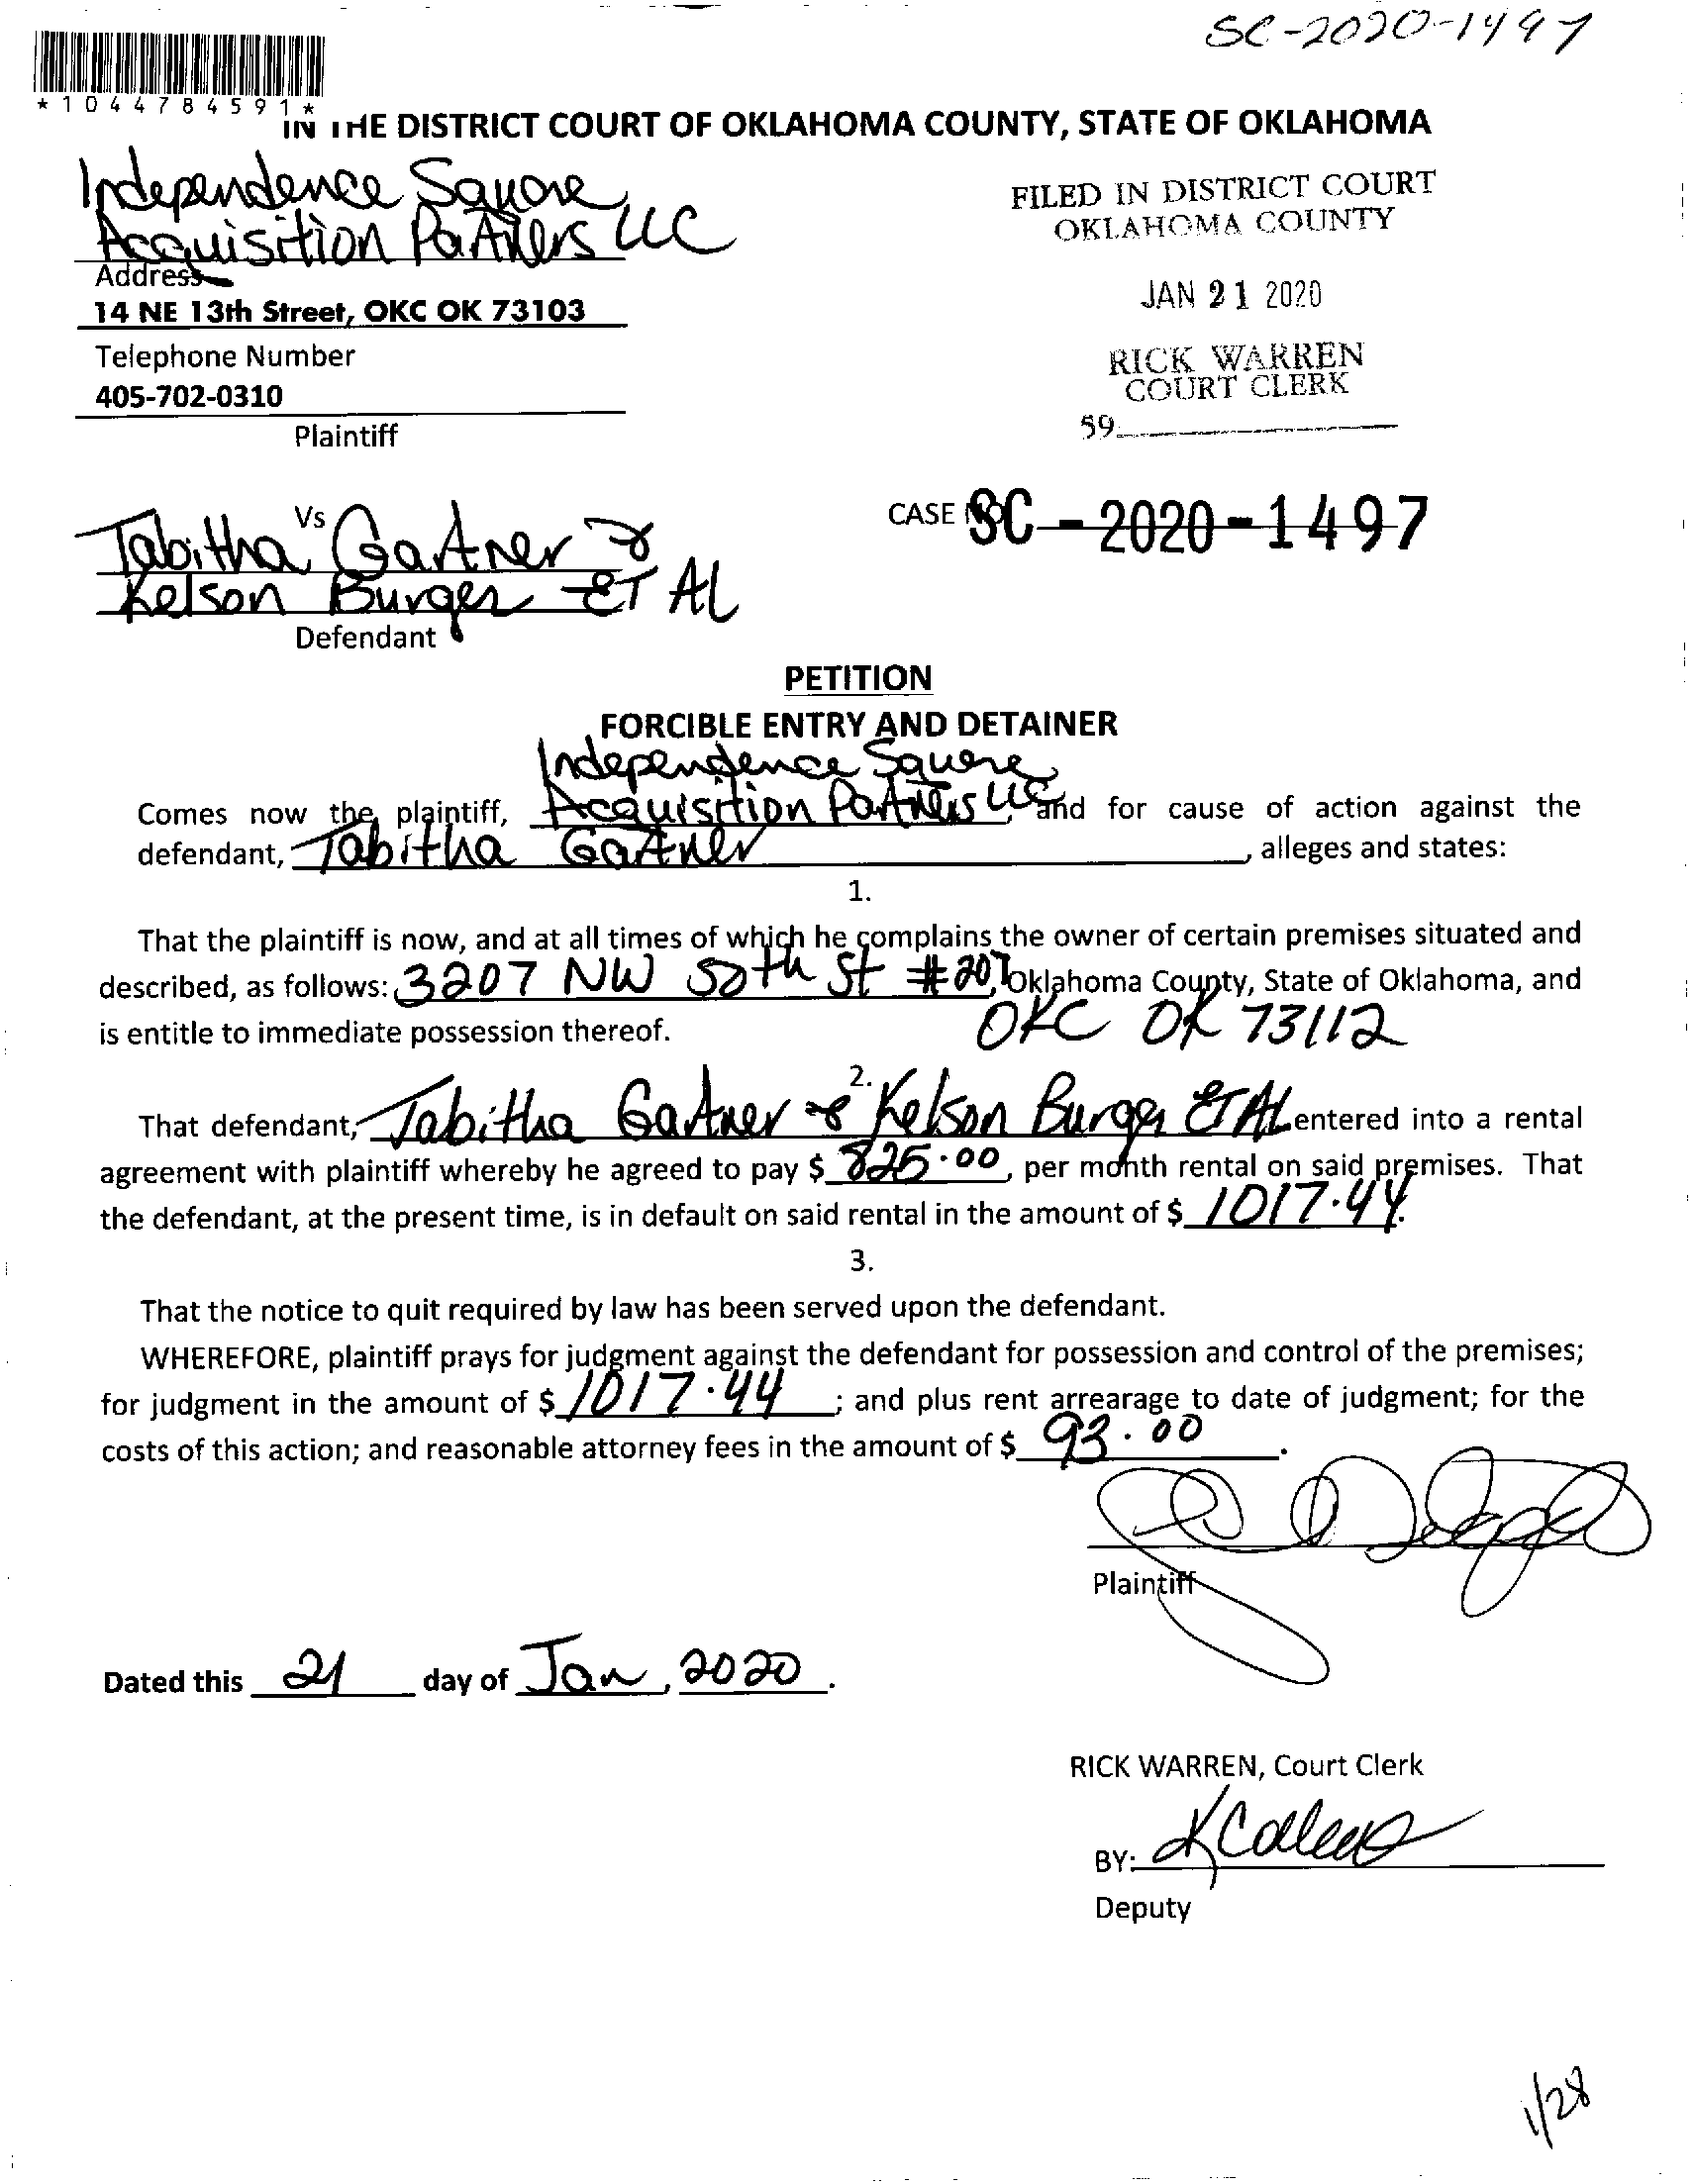 SC-2020-1497
*1044784591*
IN THE DISTRICT COURT OF OKLAHOMA COUNTY, STATE OF OKLAHOMA
Independence Square
Acquisition Partners LLC
Address
14 NE 13th Street, OKC OK 73103
Telephone Number
405-702-0310
Plaintiff
FILED IN DISTRICT COURT
OKLAHOMA COUNTY
JAN 21 2020
RICK WARREN
COURT CLERK
59
Vs
Tabitha Gartner &
Kelson Burger ET AL
Defendant
CASE NO SC-2020-1497
PETITION
FORCIBLE ENTRY AND DETAINER
Independence Square
Comes now the plaintiff, Acquisition Partners LLC, and for cause of action against the
defendant, Tabitha Gartner, alleges and states:
1.
That the plaintiff is now, and at all times of which he complains the owner of certain premises situated and
described, as follows: 3207 NW 50th St #207, Oklahoma County, State of Oklahoma, and
is entitle to immediate possession thereof. OKC OK 73112
2.
That defendant, Tabitha Gartner & Kelson Burger ET AL entered into a rental
agreement with plaintiff whereby he agreed to pay $ 825.00, per month rental on said premises. That
the defendant, at the present time, is in default on said rental in the amount of $ 1017.44.
3.
That the notice to quit required by law has been served upon the defendant.
WHEREFORE, plaintiff prays for judgment against the defendant for possession and control of the premises;
for judgment in the amount of $ 1017.44; and plus rent arrearage to date of judgment; for the
costs of this action; and reasonable attorney fees in the amount of $ 93.00.
Plaintiff
Dated this 21 day of Jan, 2020.
RICK WARREN, Court Clerk
BY:
Deputy
1/28